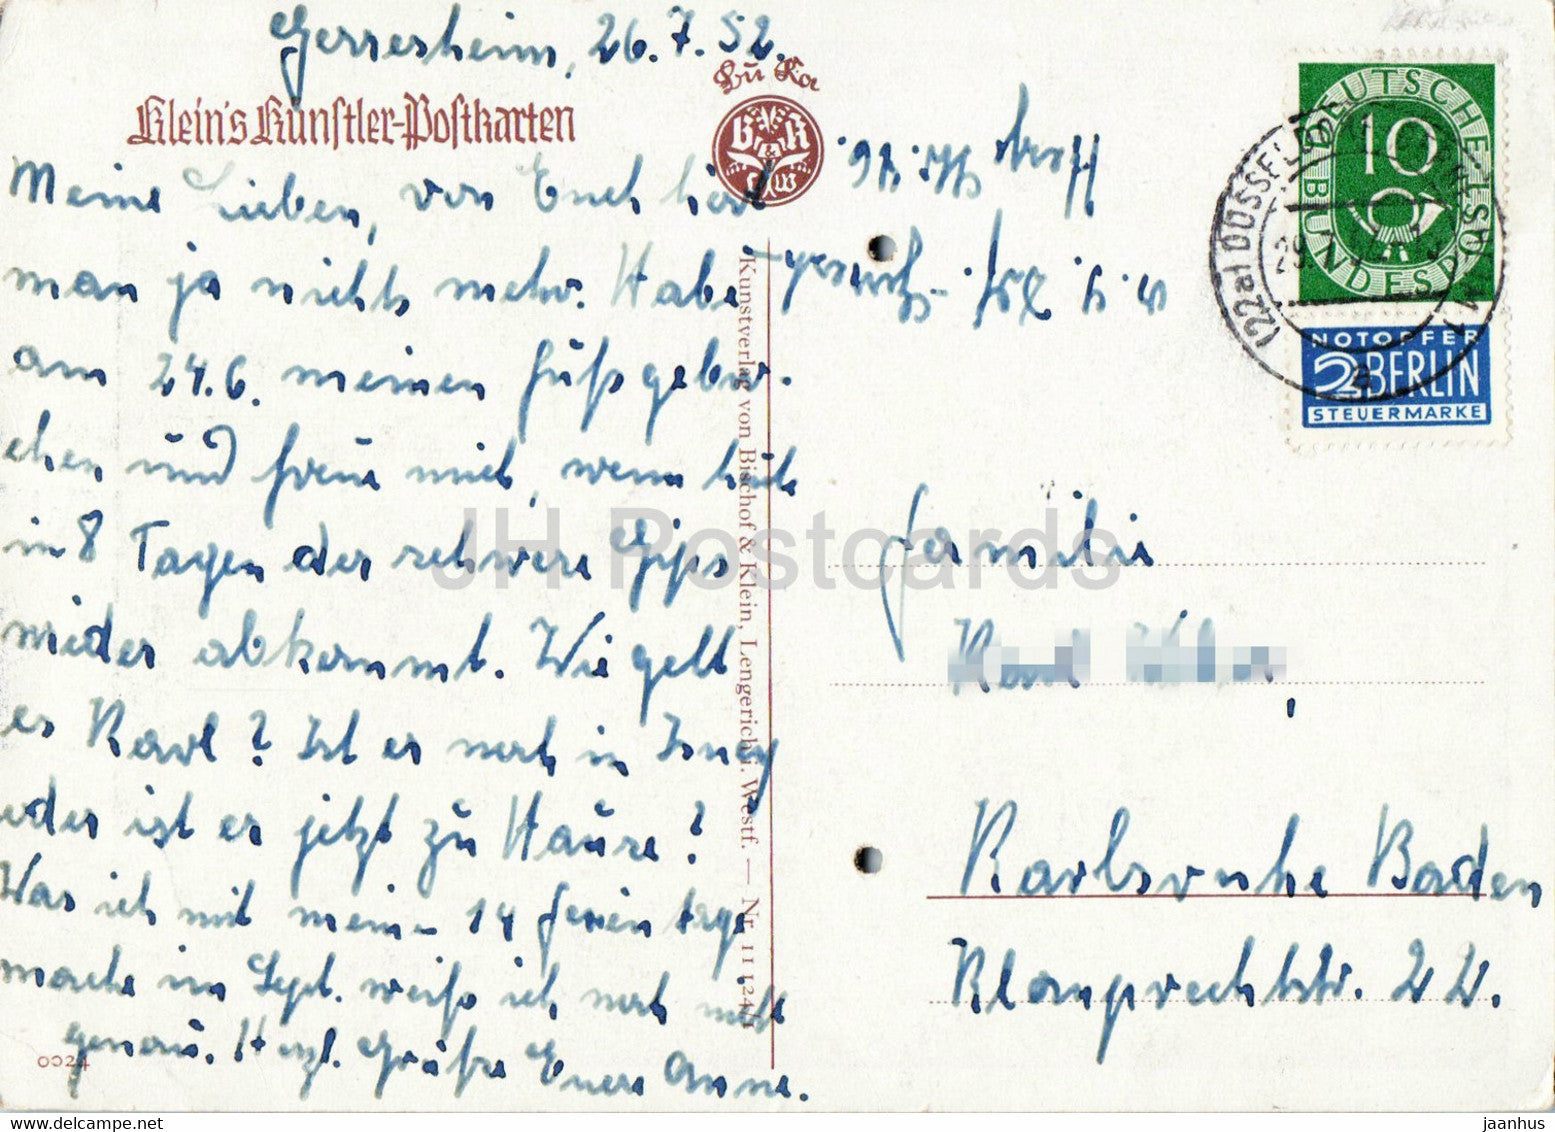 Gerresheim, 26.7.52.
Bü Ka
Klein's Künstler-Postkarten
B & K
L/W
Meine Lieben, von Euch hört
man ja nichts mehr. Habe
am 24.6. meinen Fuß gebro-
chen und freue mich, wenn heute
in 8 Tagen der schwere Gips
wieder abkommt. Wie geht
es Karl? Ist er noch in Isny
oder ist er jetzt zu Hause?
Was ich mit mein- 14 Ferientage
mache im Sept. weiß ich noch nicht
genau. Herzl. Grüße Euere Anne.
0024
Kunstverlag von Bischof & Klein, Lengerich i. Westf. — Nr. 11 124/1
DEUTSCHE BUNDESPOST
10
NOTOPFER
2 BERLIN
STEUERMARKE
(22a) DÜSSELDORF
Familie
Karl
Karlsruhe Baden
Klauprechtstr. 22.
JH Postcards
jaanhus